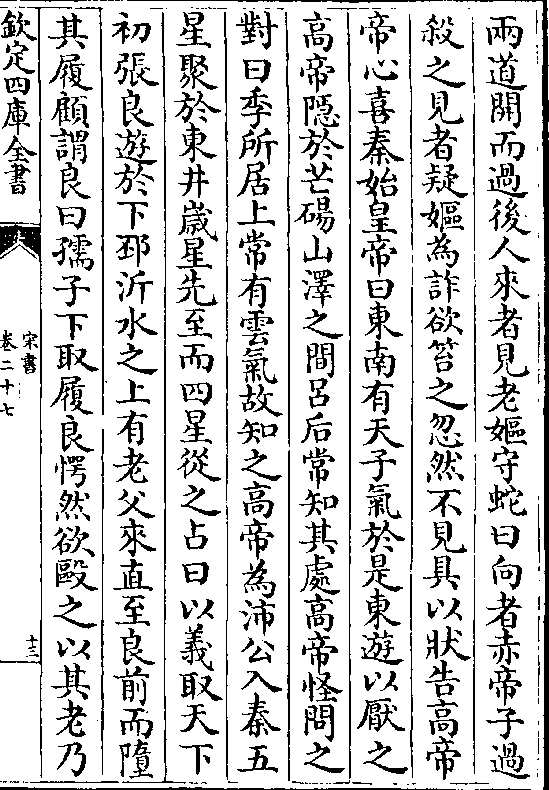 兩道開而過後人來者見老嫗守蛇曰向者赤帝子過
殺之見者疑嫗為詐欲笞之忽然不見具以狀告高帝
帝心喜秦始皇帝曰東南有天子氣於是東遊以厭之
高帝隠於芒碭山澤之間呂后常知其處高帝怪問之
對曰季所居上常有雲氣故知之高帝為沛公入秦五
星聚於東井歲星先至而四星從之占曰以義取天下
初張良遊於下邳沂水之上有老父來直至良前而墮
其履顧謂良曰孺子下取履良愕然欲毆之以其老乃
欽定四庫全書
宋書
卷二十七
十三